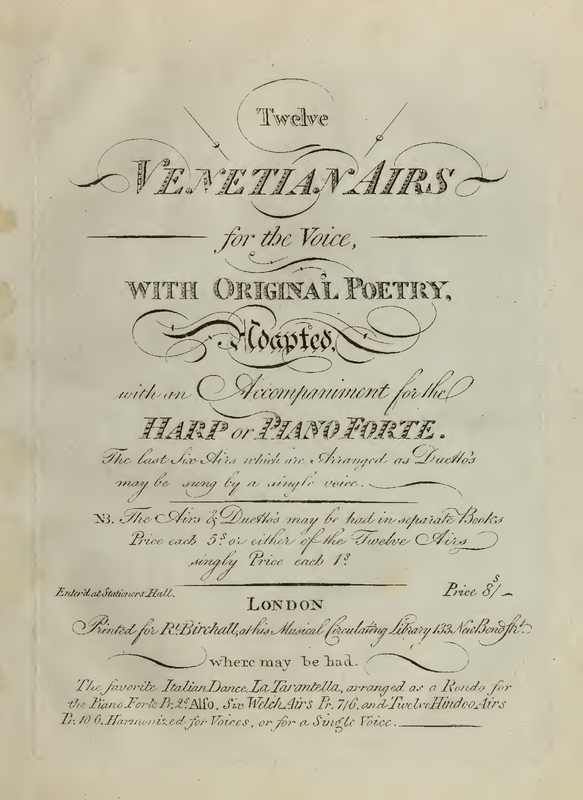 Twelve
VENETIAN AIRS
for the Voice,
WITH ORIGINAL POETRY,
Adapted,
with an Accompaniment for the
HARP or PIANO FORTE.
The last Six Airs which are Arranged as Duetto's
may be sung by a single voice.
NB. The Airs & Duetto's may be had in separate Books
Price each 5s. or either of the Twelve Airs
singly Price each 1s.
Enter'd at Stationers Hall.
Price 8s/-
LONDON
Printed for Rt. Birchall, at his Musical Circulating Library 133 New Bond Str.
where may be had.
The favorite Italian Dance, La Tarantella, arranged as a Rondo, for
the Piano Forte Pr. 2s. Also, Six Welch Airs Pr. 7/6. and Twelve Hindoo Airs
Pr. 10 6. Harmonized for Voices, or for a Single Voice.